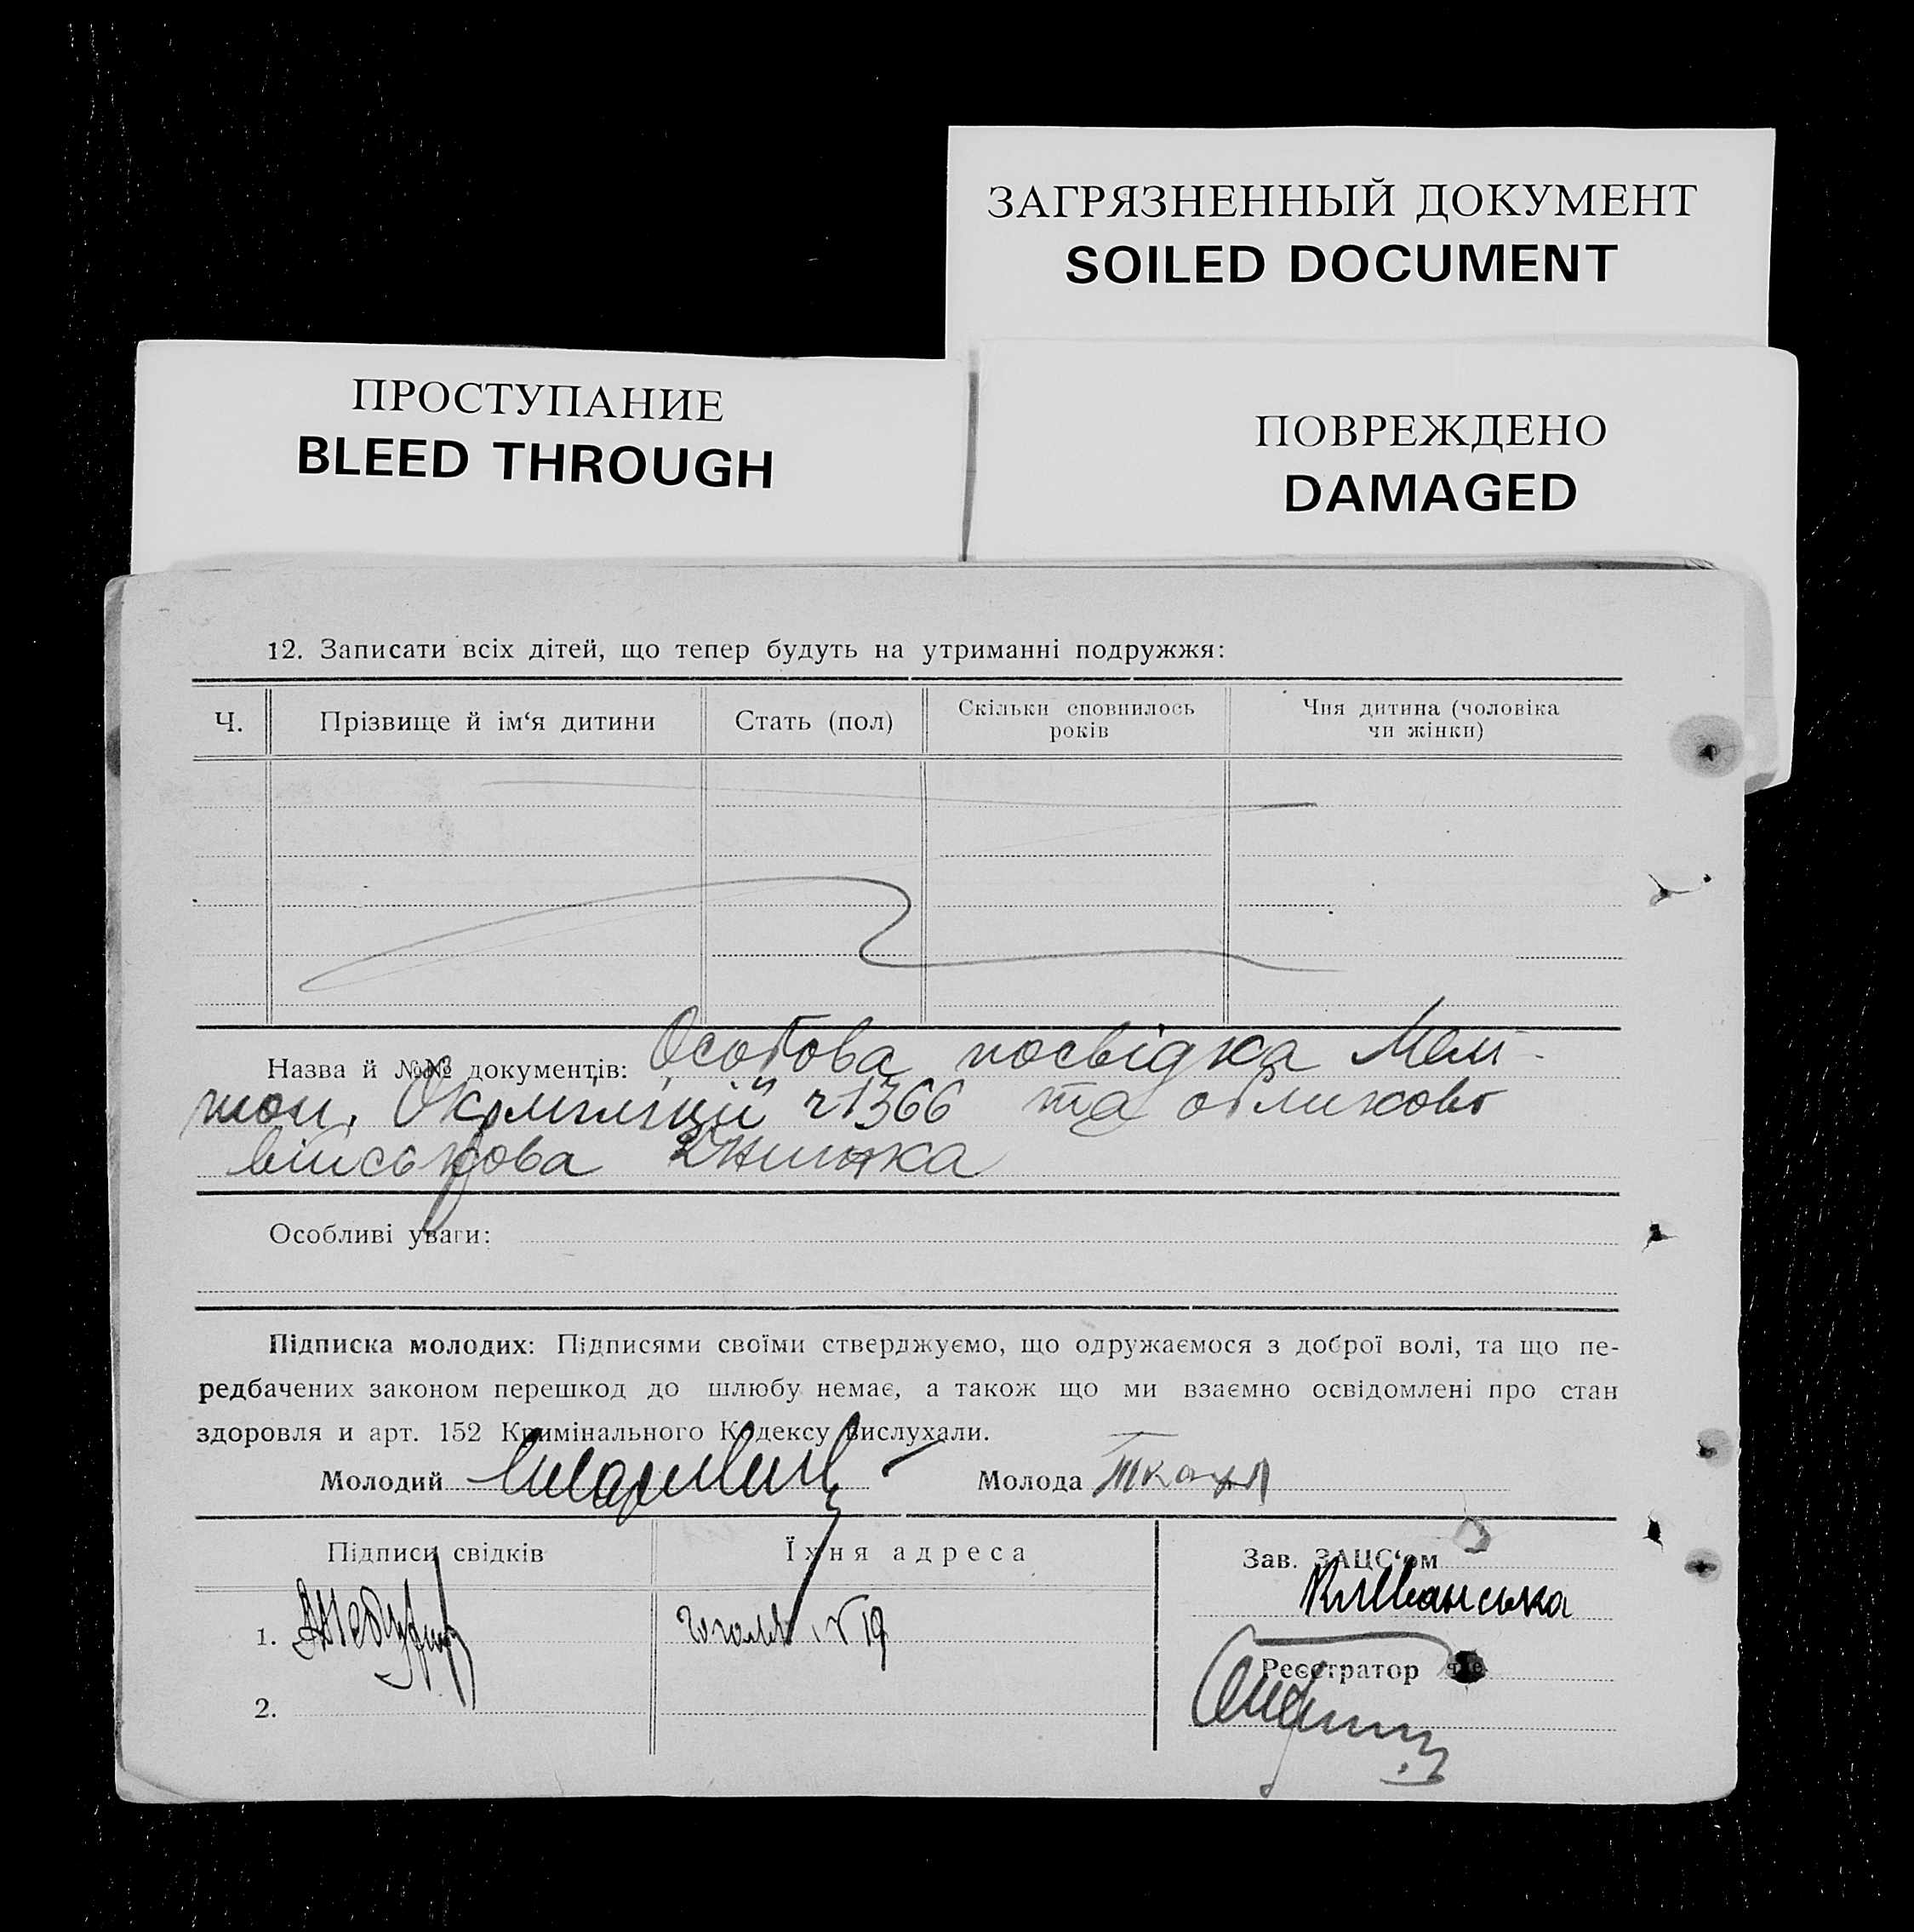 ЗАГРЯЗНЕННЫЙ ДОКУМЕНТ
SOILED DOCUMENT
ПРОСТУПАНИЕ
BLEED THROUGH
ПОВРЕЖДЕНО
DAMAGED
12. Записати всіх дітей, що тепер будуть на утриманні подружжя:
Ч.
Прізвище й ім‘я дитини
Стать (пол)
Скільки сповнилось
років
Чия дитина (чоловіка
чи жінки)
Назва й №№ документів: Особова посвідка Мелі-
топ. Окрміліцій ч 1366 та обліково
військова книжка
Особливі уваги:
Підписка молодих: Підписями своїми стверджуємо, що одружаємося з доброї волі, та що пе-
редбачених законом перешкод до шлюбу немає, а також що ми взаємно освідомлені про стан
здоровля и арт. 152 Кримінального Кодексу вислухали.
Молодий
Молода
Підписи свідків
Їхня адреса
Зав. ЗАЦС‘ом
1.
№ 19
Реєстратор
2.